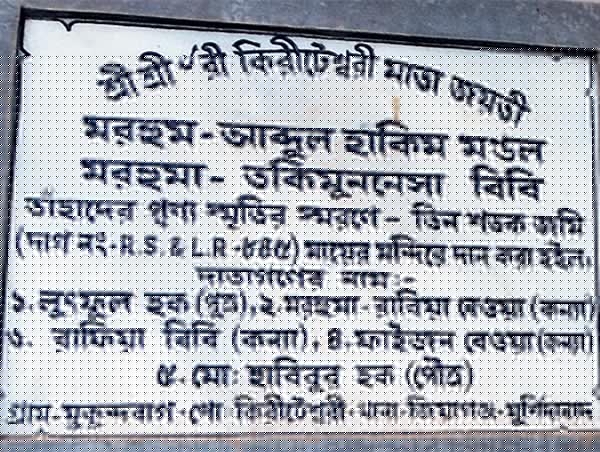 শ্রী শ্রী ৺রী কিরীটেশ্বরী মাতা জয়তী
মরহুম - আব্দুল হাকিম মণ্ডল
মরহুমা - তকিমুননেসা বিবি
তাঁহাদের পূণ্য স্মৃতির স্মরণে - তিন শতক জমি
(দাগ নং - R.S. & L.R - ৮৪৫) মায়ের মন্দিরে দান করা হইল।
দাতাগণের নাম :-
১. লুৎফুল হক (পুত্র), ২. মরহুমা - রাবিয়া বেওয়া (কন্যা)
৩. রাফিয়া বিবি (কন্যা), ৪. ফাইজন বেওয়া (কন্যা)
৫. মোঃ হাবিবুর হক (পৌত্র)
গ্রাম - মুকুন্দবাগ - পো কিরীটেশ্বরী - থানা - জিয়াগঞ্জ - মুর্শিদাবাদ